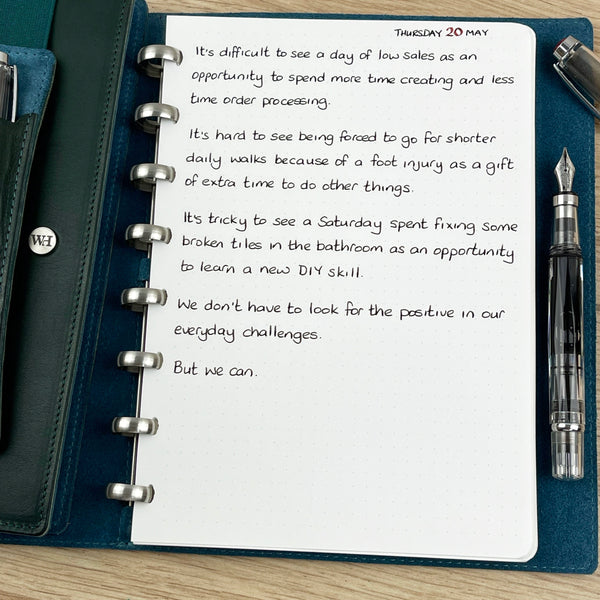 THURSDAY 20 MAY
It's difficult to see a day of low sales as an
opportunity to spend more time creating and less
time order processing.
It's hard to see being forced to go for shorter
daily walks because of a foot injury as a gift
of extra time to do other things.
It's tricky to see a Saturday spent fixing some
broken tiles in the bathroom as an opportunity
to learn a new DIY skill.
We don't have to look for the positive in our
everyday challenges.
But we can.
WH